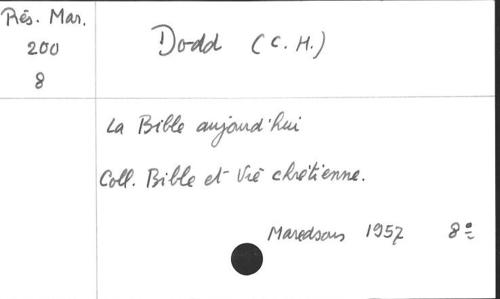 Rés. Mar.
200
8
Dodd (C. H.)
La Bible aujourd'hui
Coll. Bible et Vie chrétienne.
Maredsous 1957 8º